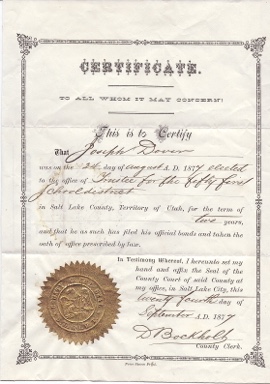 CERTIFICATE.
TO ALL WHOM IT MAY CONCERN:
This is to Certify
That Joseph Dover
was on the 2nd day of August A. D. 1877 elected
to the office of Trustee for the fifty first
School district
in Salt Lake County, Territory of Utah, for the term of
two years,
and that he as such has filed his official bonds and taken the
oath of office prescribed by law.
In Testimony Whereof, I hereunto set my
hand and affix the Seal of the
County Court of said County at
my office, in Salt Lake City, this
twenty fourth day of
September A.D. 1877
D Bockholt
County Clerk.